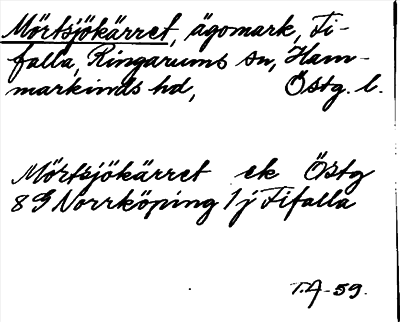 Mörtsjökärret, ägomark, Fi-
falla, Ringarums sn, Ham-
markinds hd, Östg. l.
Mörtsjökärret ek Östg
8G Norrköping 1j Fifalla
T.A-59.